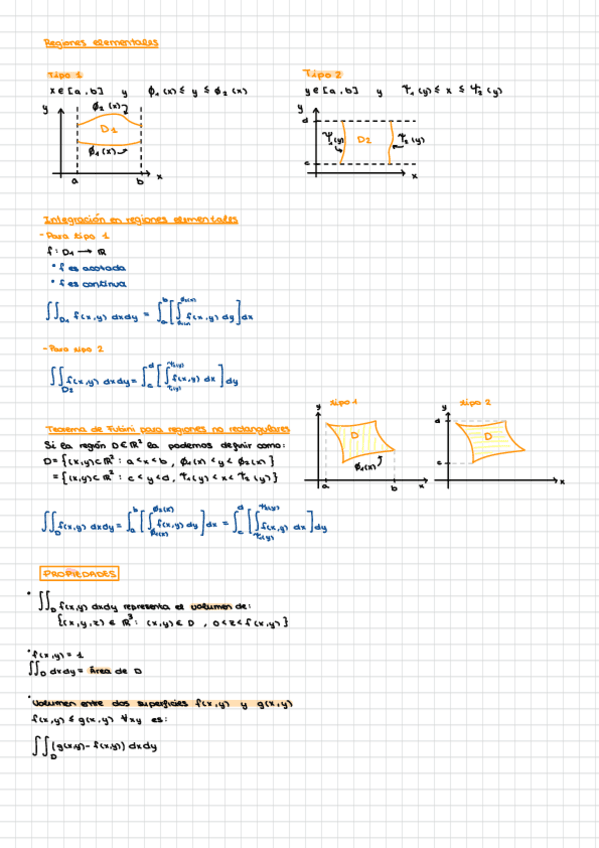 Regiones elementales
Tipo 1
x ∈ [a, b] y ϕ₁(x) ≤ y ≤ ϕ₂(x)
y
ϕ₂(x)
D₁
ϕ₁(x)
a
b
x
Tipo 2
y ∈ [a, b] y Ψ₁(y) ≤ x ≤ Ψ₂(y)
y
d
Ψ₁(y)
D2
Ψ₂(y)
c
x
Integración en regiones elementales
- Para tipo 1
f: D₁ → ℝ
* f es acotada
* f es continua
∬_D₁ f(x,y) dxdy = ∫_a^b [∫_ϕ₁(x)^ϕ₂(x) f(x,y) dy] dx
- Para tipo 2
∬_D₂ f(x,y) dxdy = ∫_c^d [∫_Ψ₁(y)^Ψ₂(y) f(x,y) dx] dy
Teorema de Fubini para regiones no rectangulares
Si la región D ∈ ℝ² la podemos definir como:
D = {(x,y) ⊂ ℝ² : a < x < b, ϕ₁(x) < y < ϕ₂(x)}
= {(x,y) ⊂ ℝ² : c < y < d, Ψ₁(y) < x < Ψ₂(y)}
tipo 1
y
D
ϕ₁(x)
a
b
x
tipo 2
y
d
D
c
x
∬_D f(x,y) dxdy = ∫_a^b [∫_ϕ₁(x)^ϕ₂(x) f(x,y) dy] dx = ∫_c^d [∫_Ψ₁(y)^Ψ₂(y) f(x,y) dx] dy
PROPIEDADES
* ∬_D f(x,y) dxdy representa el volumen de:
{(x,y,z) ∈ ℝ³ : (x,y) ∈ D, 0 < z < f(x,y)}
* f(x,y) = 1
∬_D dxdy = Área de D
* Volumen entre dos superficies f(x,y) y g(x,y)
f(x,y) ≤ g(x,y) ∀xy es:
∬_D (g(x,y) - f(x,y)) dxdy